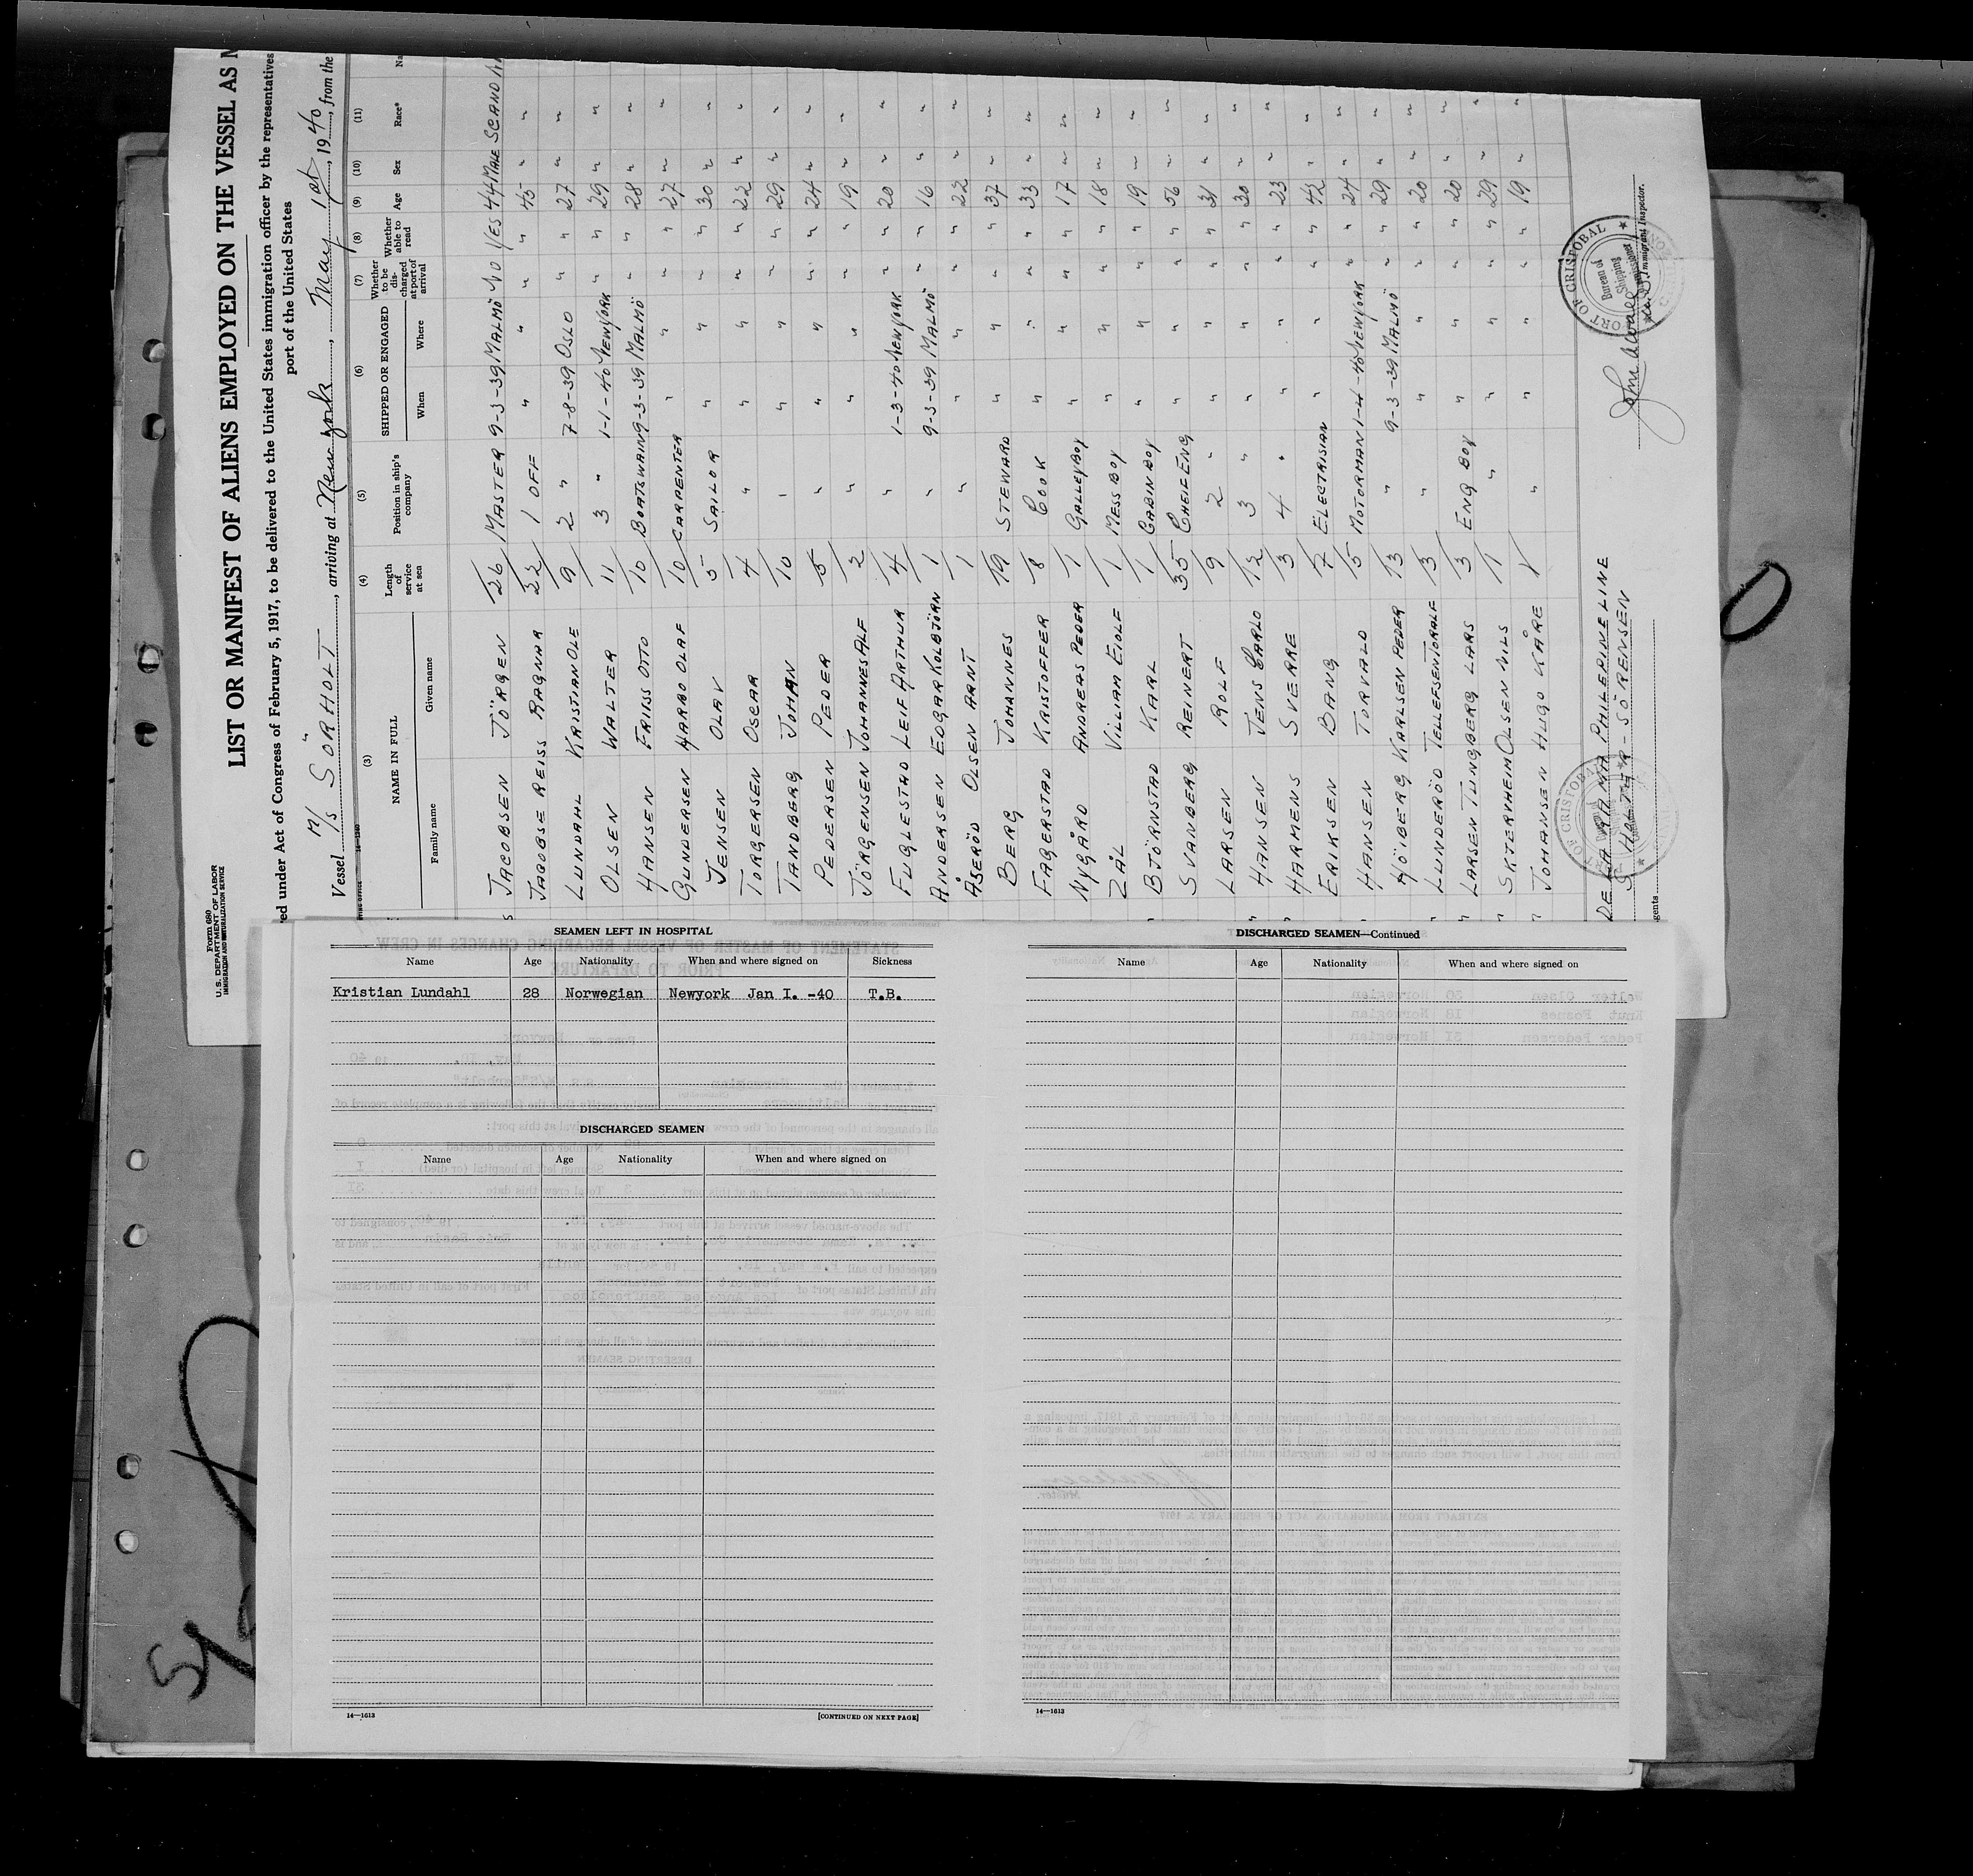 Form 680
U. S. DEPARTMENT OF LABOR
IMMIGRATION AND NATURALIZATION SERVICE
LIST OR MANIFEST OF ALIENS EMPLOYED ON THE VESSEL AS M
ed under Act of Congress of February 5, 1917, to be delivered to the United States immigration officer by the representatives
port of the United States
Vessel M/S SÖRHOLT, arriving at New York, May 1st, 1940, from the
(3) (4) (5) (6) (7) (8) (9) (10) (11)
NAME IN FULL Length of service at sea Position in ship's company SHIPPED OR ENGAGED Whether to be discharged at port of arrival Whether able to read Age Sex Race* Na
Family name Given name When Where
JACOBSEN JÖRGEN 26 MASTER 9-3-39 MALMÖ NO YES 44 MALE SCAND
JACOBSE REISS RAGNAR 22 1 OFF " " " " 45 " "
LUNDAHL KRISTIAN OLE 9 2 " 7-8-39 OSLO " " 27 " "
OLSEN WALTER 11 3 " 1-1-40 NEWYORK " " 29 " "
HANSEN FRIISS OTTO 10 BOATSWAIN 9-3-39 MALMÖ " " 28 " "
GUNDERSEN HARBO OLAF 10 CARPENTER " " " " 27 " "
JENSEN OLAV 5 SAILOR " " " " 30 " "
TORGERSEN OSCAR 4 " " " " " 22 " "
TANDBERG JOHAN 10 " " " " " 29 " "
PEDERSEN PEDER 5 " " " " " 24 " "
JÖRGENSEN JOHANNES ALF 2 " " " " " 19 " "
FUGLESTAD LEIF ARTHUR 4 " 1-3-40 NEWYORK " " 20 " "
ANDERSEN EDGAR KOLBJÖRN 1 " 9-3-39 MALMÖ " " 16 " "
ÅSERÖD OLSEN ARNT 1 " " " " " 22 " "
BERG JOHANNES 19 STEWARD " " " " 37 " "
FAGERSTAD KRISTOFFER 8 COOK " " " " 33 " "
NYGÅRD ANDREAS PEDER 1 GALLEYBOY " " " " 17 " "
ZÅL VILLIAM EIOLF 1 MESSBOY " " " " 18 " "
BJÖRNSTAD KARL 1 CABINBOY " " " " 19 " "
SVANBERG REINERT 35 CHEIF ENG " " " " 56 " "
LARSEN ROLF 9 2 " " " " " 31 " "
HANSEN JENS CARLO 12 3 " " " " " 30 " "
HARMENS SVERRE 3 4 " " " " " 23 " "
ERIKSEN BANG 7 ELECTRISIAN " " " " 42 " "
HANSEN TORVALD 5 MOTORMAN 1-4-40 NEWYORK " " 24 " "
HÖIBERG KARLSEN PEDER 13 " 9-3-39 MALMÖ " " 29 " "
LUNDERÖD TELLEFSEN TORALF 3 " " " " " 20 " "
LARSEN TUNGBERG LARS 3 ENG BOY " " " " 20 " "
SKTERVHEIM OLSEN NILS 1 " " " " " 29 " "
JOHANSEN HUGO KÅRE 1 " " " " " 19 " "
DE LA RAMA PHILEPINE LINE
S. HOLTER-SÖRENSEN
PORT OF CRISTOBAL
PORT OF CRISTOBAL
Bureau of Shipping Commissioner
Immigrant Inspector.
gents
SEAMEN LEFT IN HOSPITAL
Name Age Nationality When and where signed on Sickness
Kristian Lundahl 28 Norwegian Newyork Jan I. -40 T.B.
DISCHARGED SEAMEN
Name Age Nationality When and where signed on
14—1613 [CONTINUED ON NEXT PAGE]
DISCHARGED SEAMEN—Continued
Name Age Nationality When and where signed on
14—1613